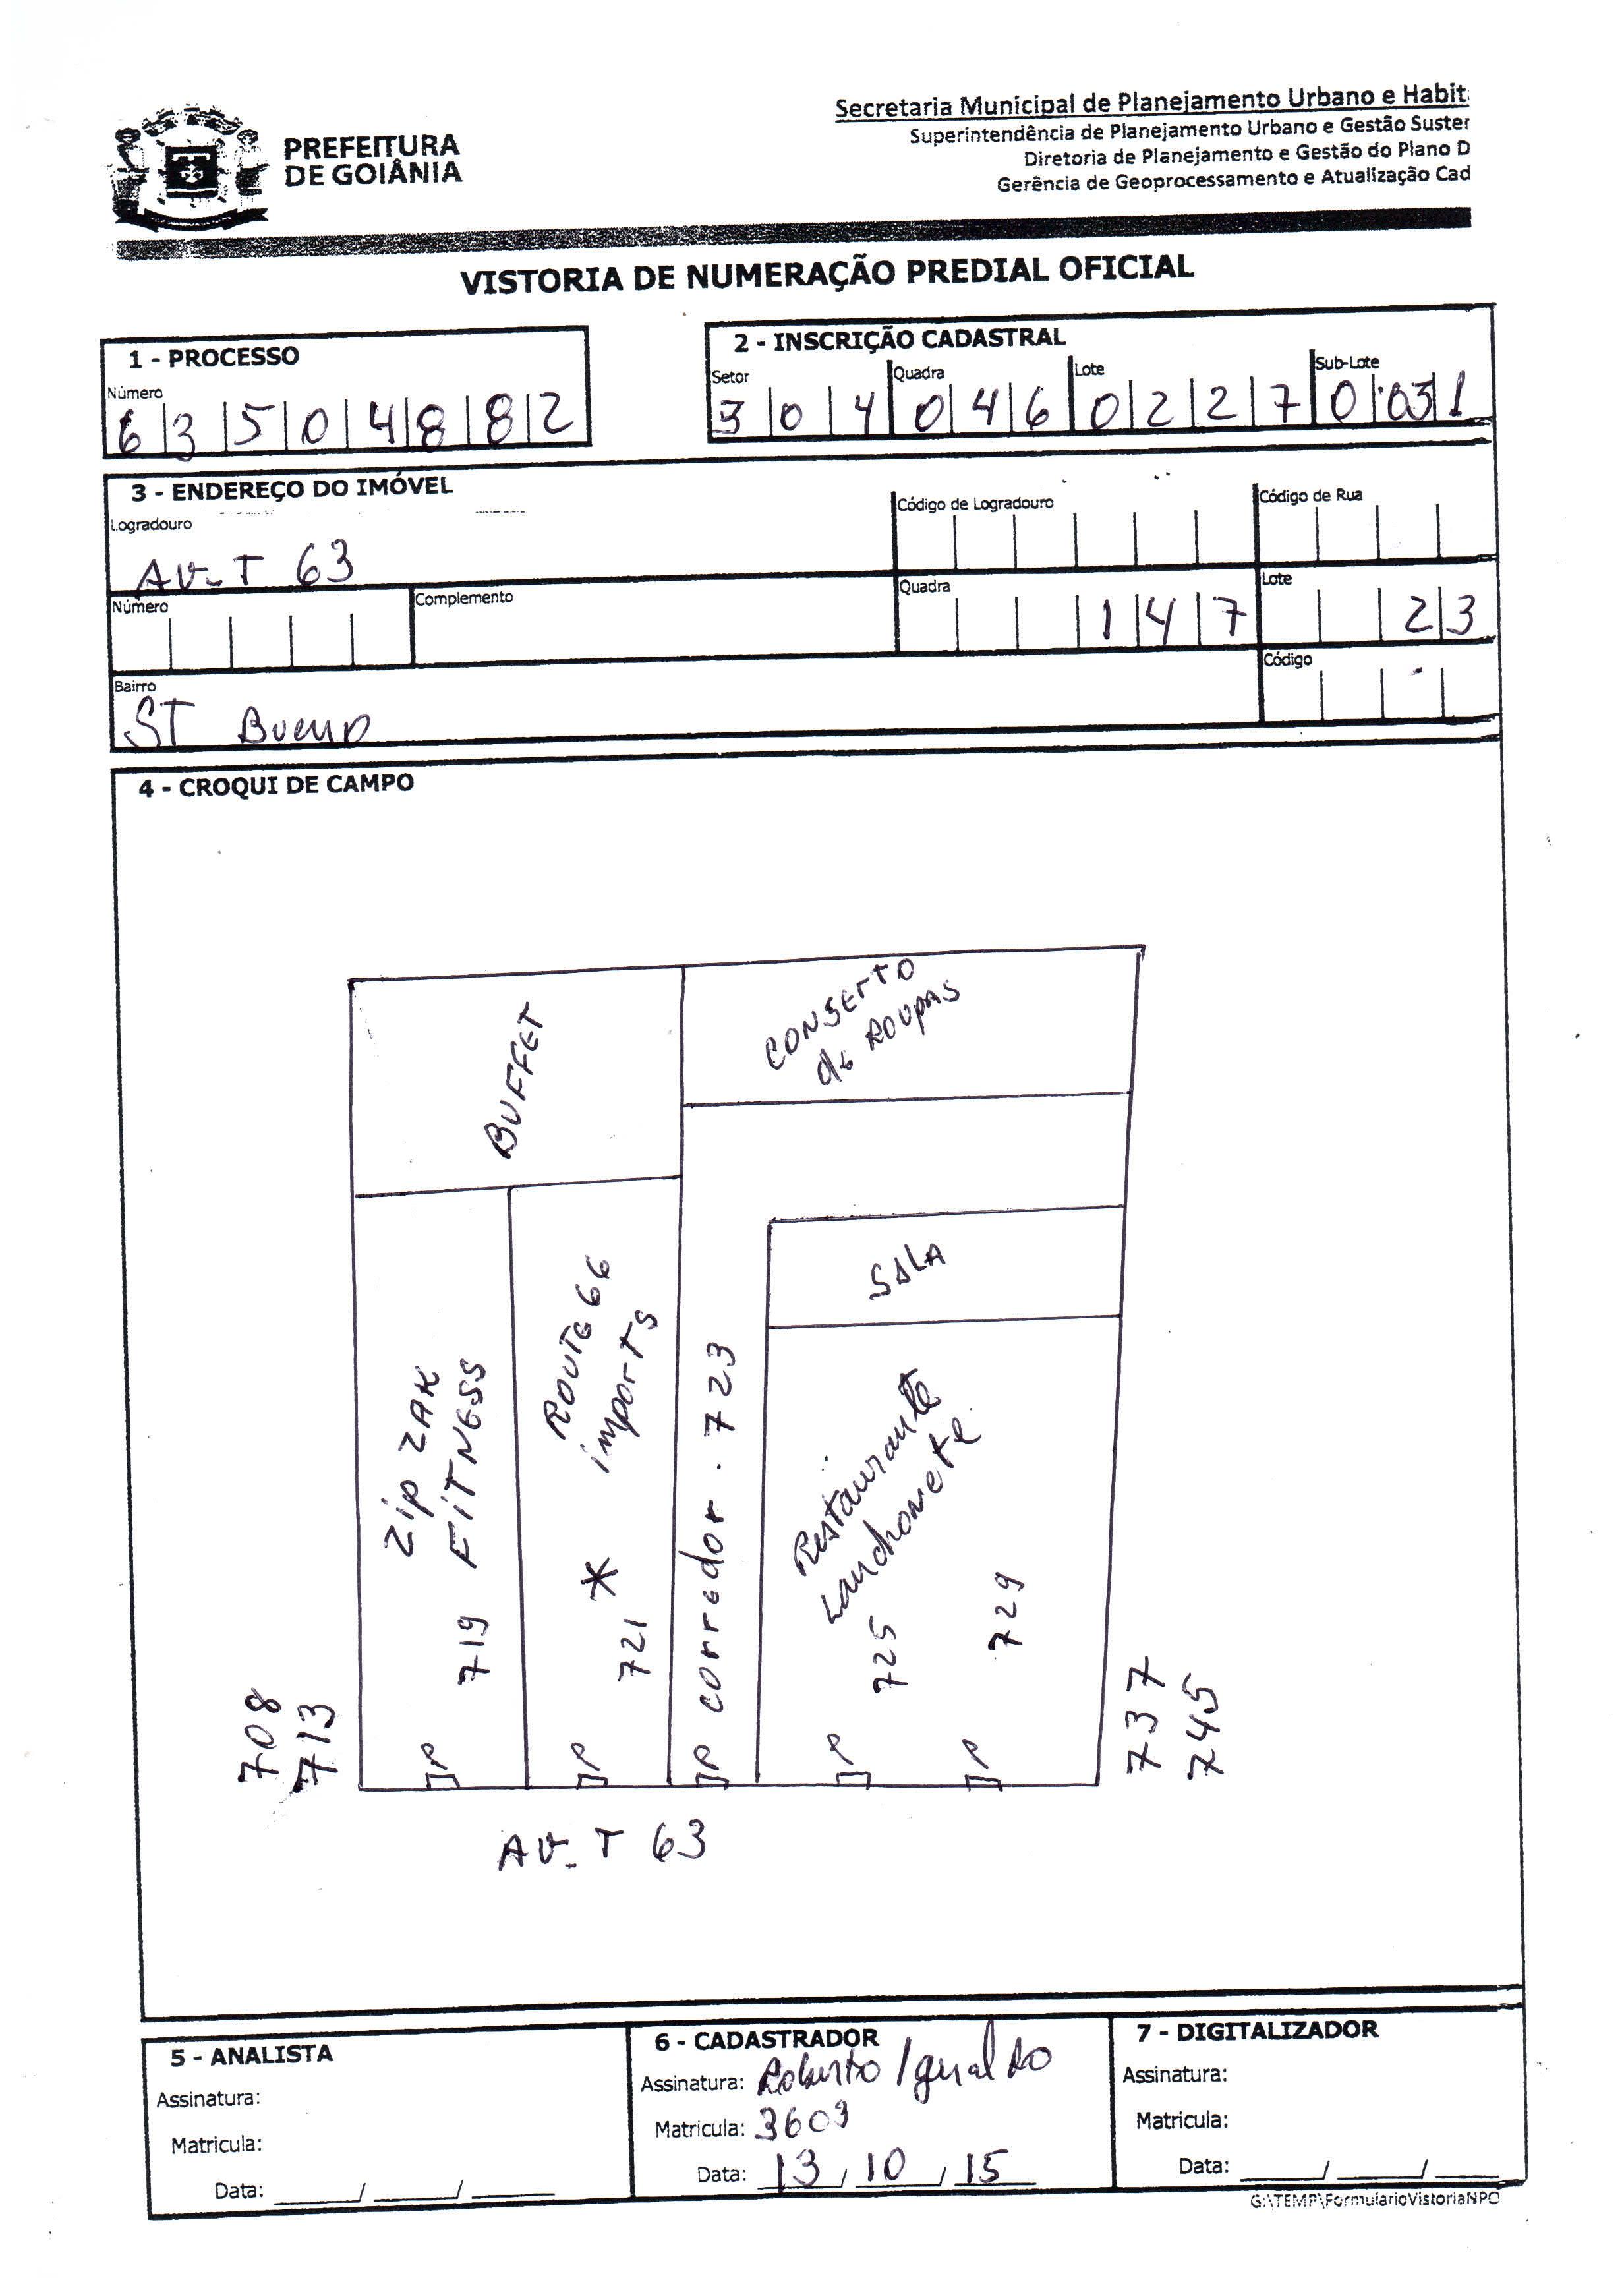 PREFEITURA
DE GOIÂNIA
Secretaria Municipal de Planejamento Urbano e Habit
Superintendência de Planejamento Urbano e Gestão Suster
Diretoria de Planejamento e Gestão do Plano D
Gerência de Geoprocessamento e Atualização Cad
VISTORIA DE NUMERAÇÃO PREDIAL OFICIAL
1 - PROCESSO
Número
6 3 5 0 4 8 8 2
2 - INSCRIÇÃO CADASTRAL
Setor Quadra Lote Sub-Lote
3 0 4 0 4 6 0 2 2 7 0 03 1
3 - ENDEREÇO DO IMÓVEL
Logradouro
AV-T 63
Código de Logradouro
Código de Rua
Número
Complemento
Quadra
1 4 7
Lote
2 3
Bairro
ST Bueno
Código
4 - CROQUI DE CAMPO
BUFFET
CONSERTO
de ROUPAS
SALA
Zip ZAK
FITNESS
719
ROUTE 66
imports
*
721
corredor. 723
Restaurante
Lanchonete
725
729
708
713
737
745
P P P P P
AV-T 63
5 - ANALISTA
Assinatura:
Matricula:
Data: / /
6 - CADASTRADOR
Assinatura: Roberto / geraldo
Matricula: 3609
Data: 13 / 10 / 15
7 - DIGITALIZADOR
Assinatura:
Matricula:
Data: / /
G:\TEMP\FormularioVistoriaNPO